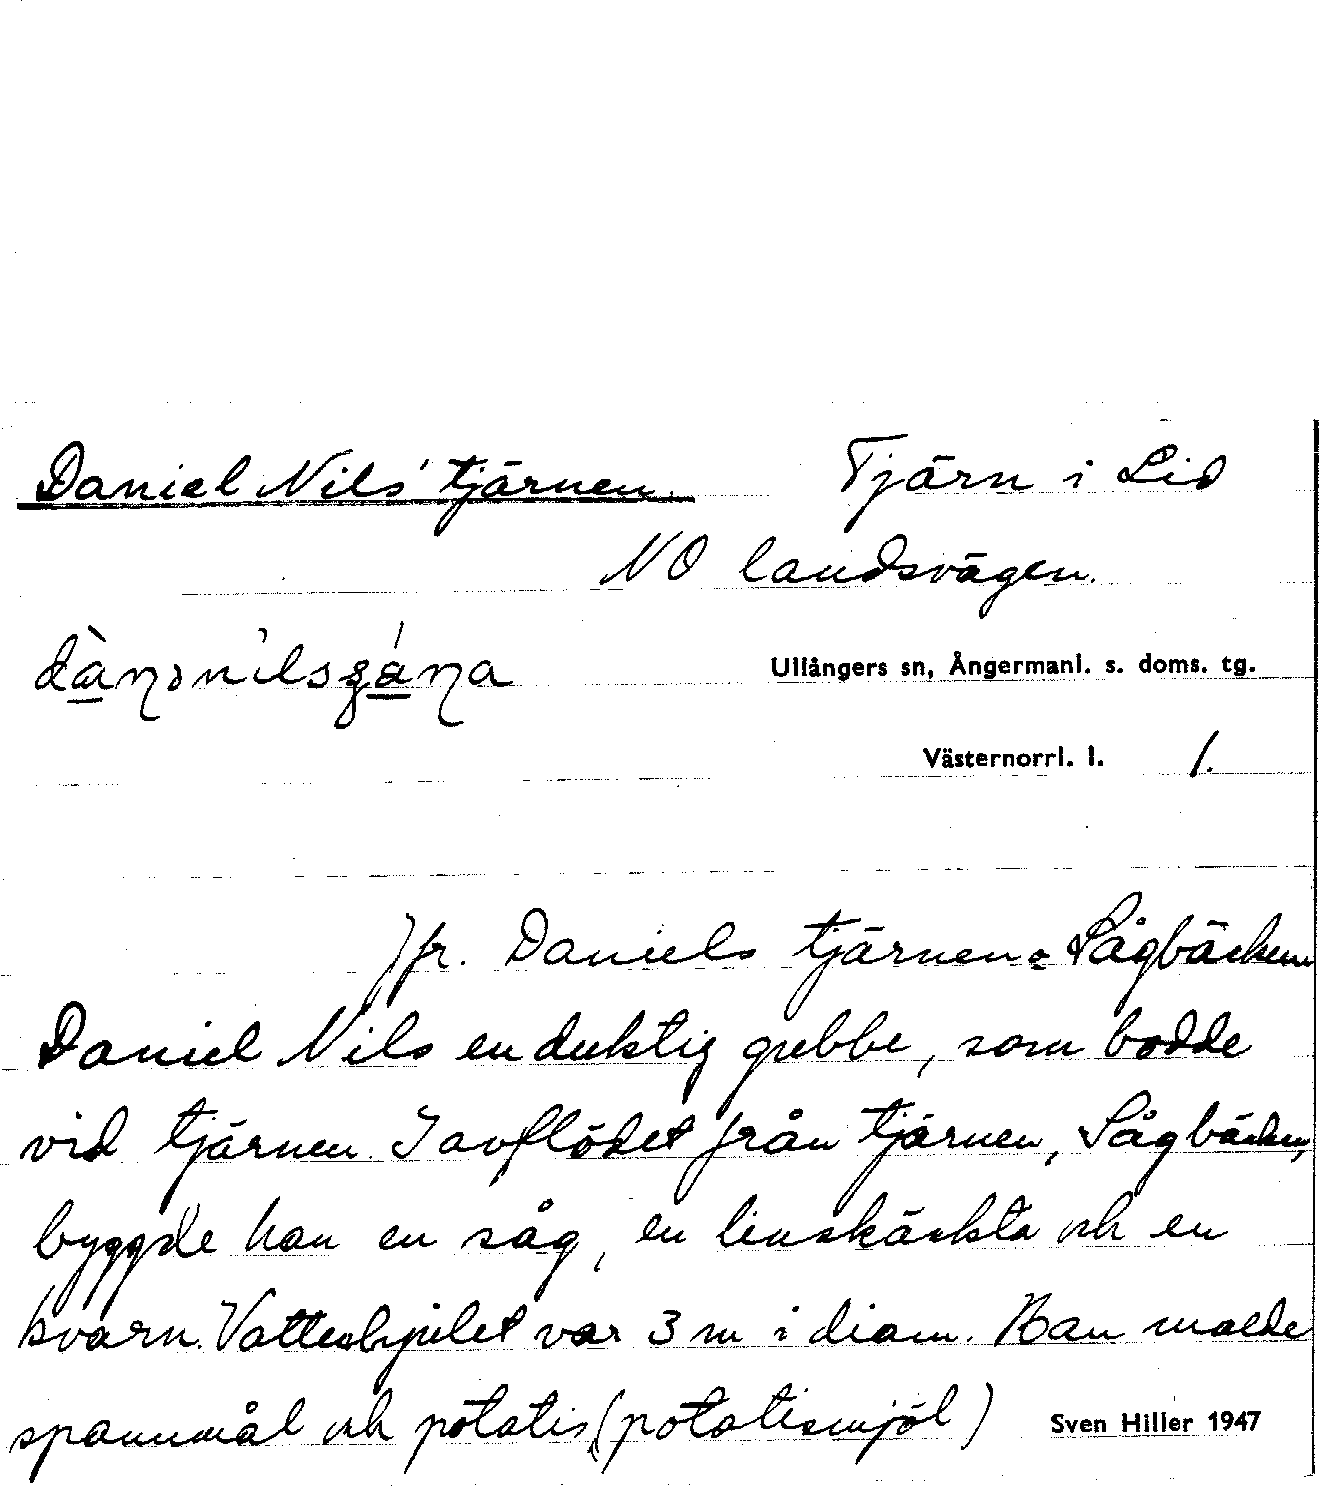 Daniel Nils' tjärnen. Tjärn i Lid
NO landsvägen.
Ullångers sn, Ångermanl. s. doms. tg.
Västernorrl. l. 1.
Jfr. Daniels tjärnen o Sågbäcken
Daniel Nils en duktig gubbe, som bodde
vid tjärnen. I avflödet från tjärnen, Sågbäcken,
byggde han en såg, en linskäckta och en
kvarn. Vattenhjulet var 3 m i diam. Han malde
spannmål och potatis (potatismjöl) Sven Hiller 1947